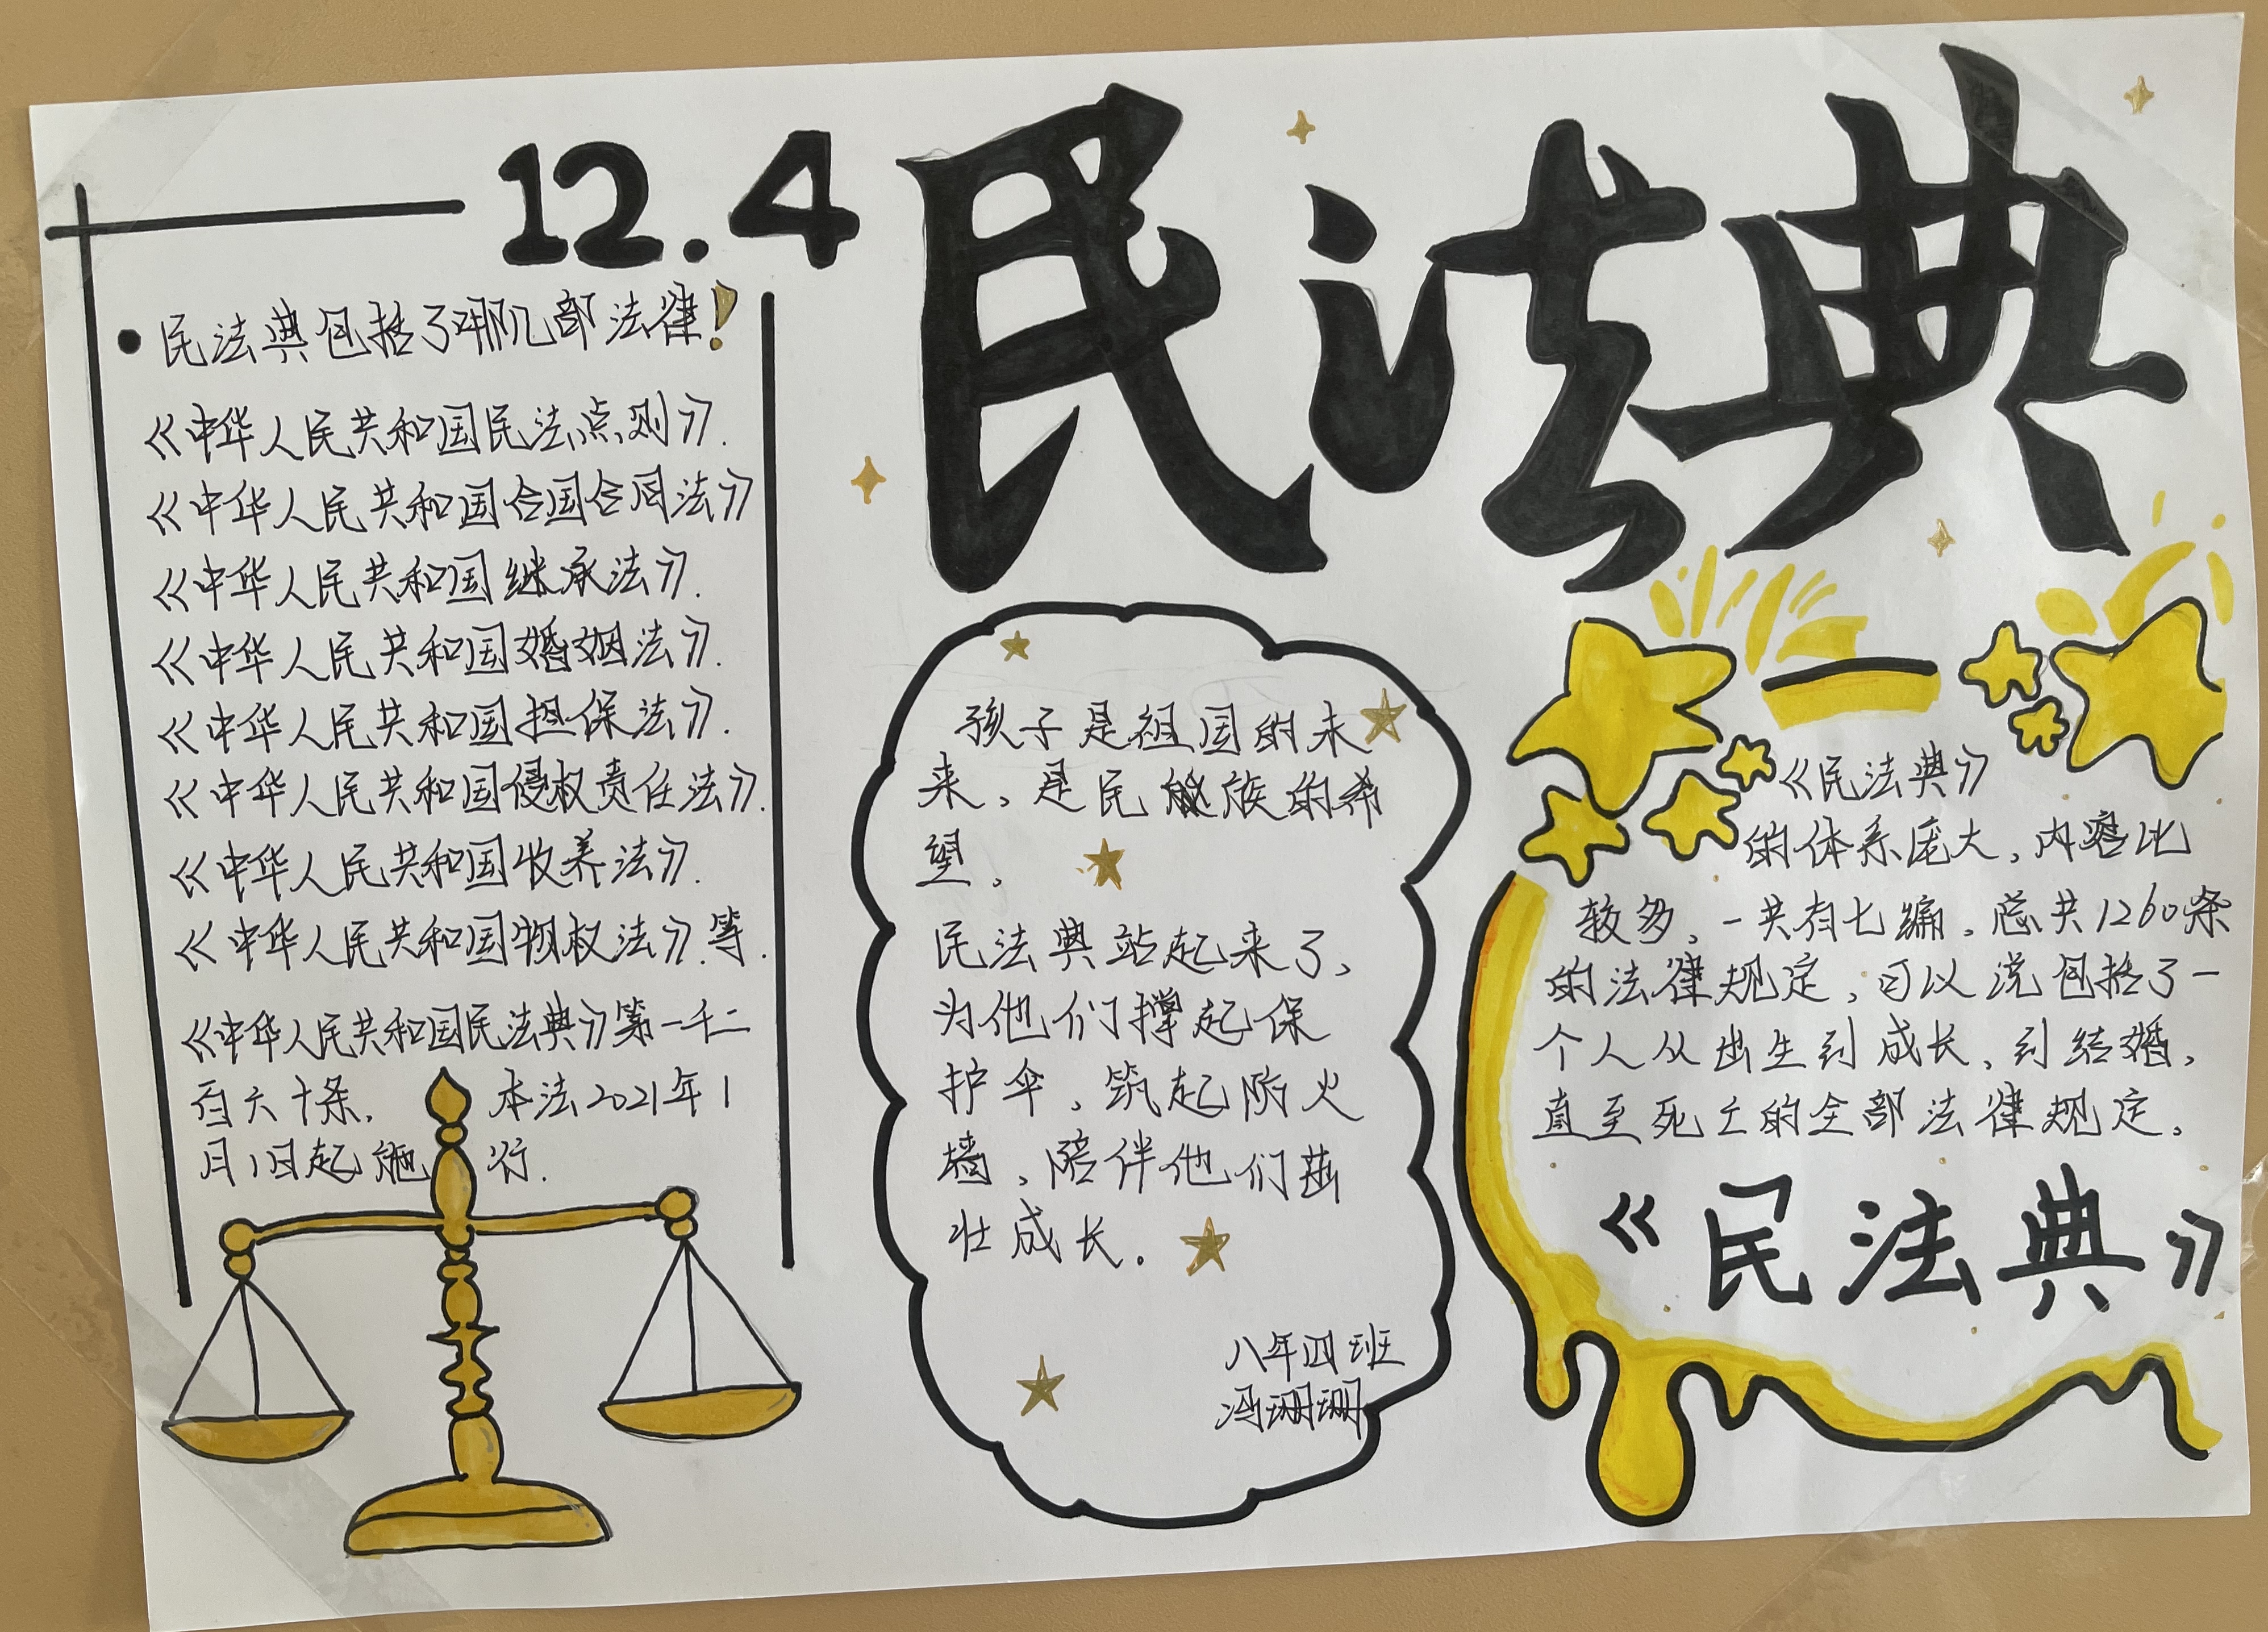 12.4 民法典
•民法典包括了哪几部法律!
《中华人民共和国民法点则》.
《中华人民共和国合国合同法》
《中华人民共和国继承法》.
《中华人民共和国婚姻法》.
《中华人民共和国担保法》.
《中华人民共和国侵权责任法》.
《中华人民共和国收养法》.
《中华人民共和国物权法》.等.
《中华人民共和国民法典》第一千二
百六十条, 本法2021年1
月1日起施行.
孩子是祖国的未
来,是民族的希
望。
民法典站起来了,
为他们撑起保
护伞,筑起防火
墙,陪伴他们茁
壮成长.
八年四班
冯珊珊
《民法典》
的体系庞大,内容比
较多,一共有七编,总共1260条
的法律规定,可以说包括了一
个人从出生到成长,到结婚,
直至死亡的全部法律规定。
《民法典》